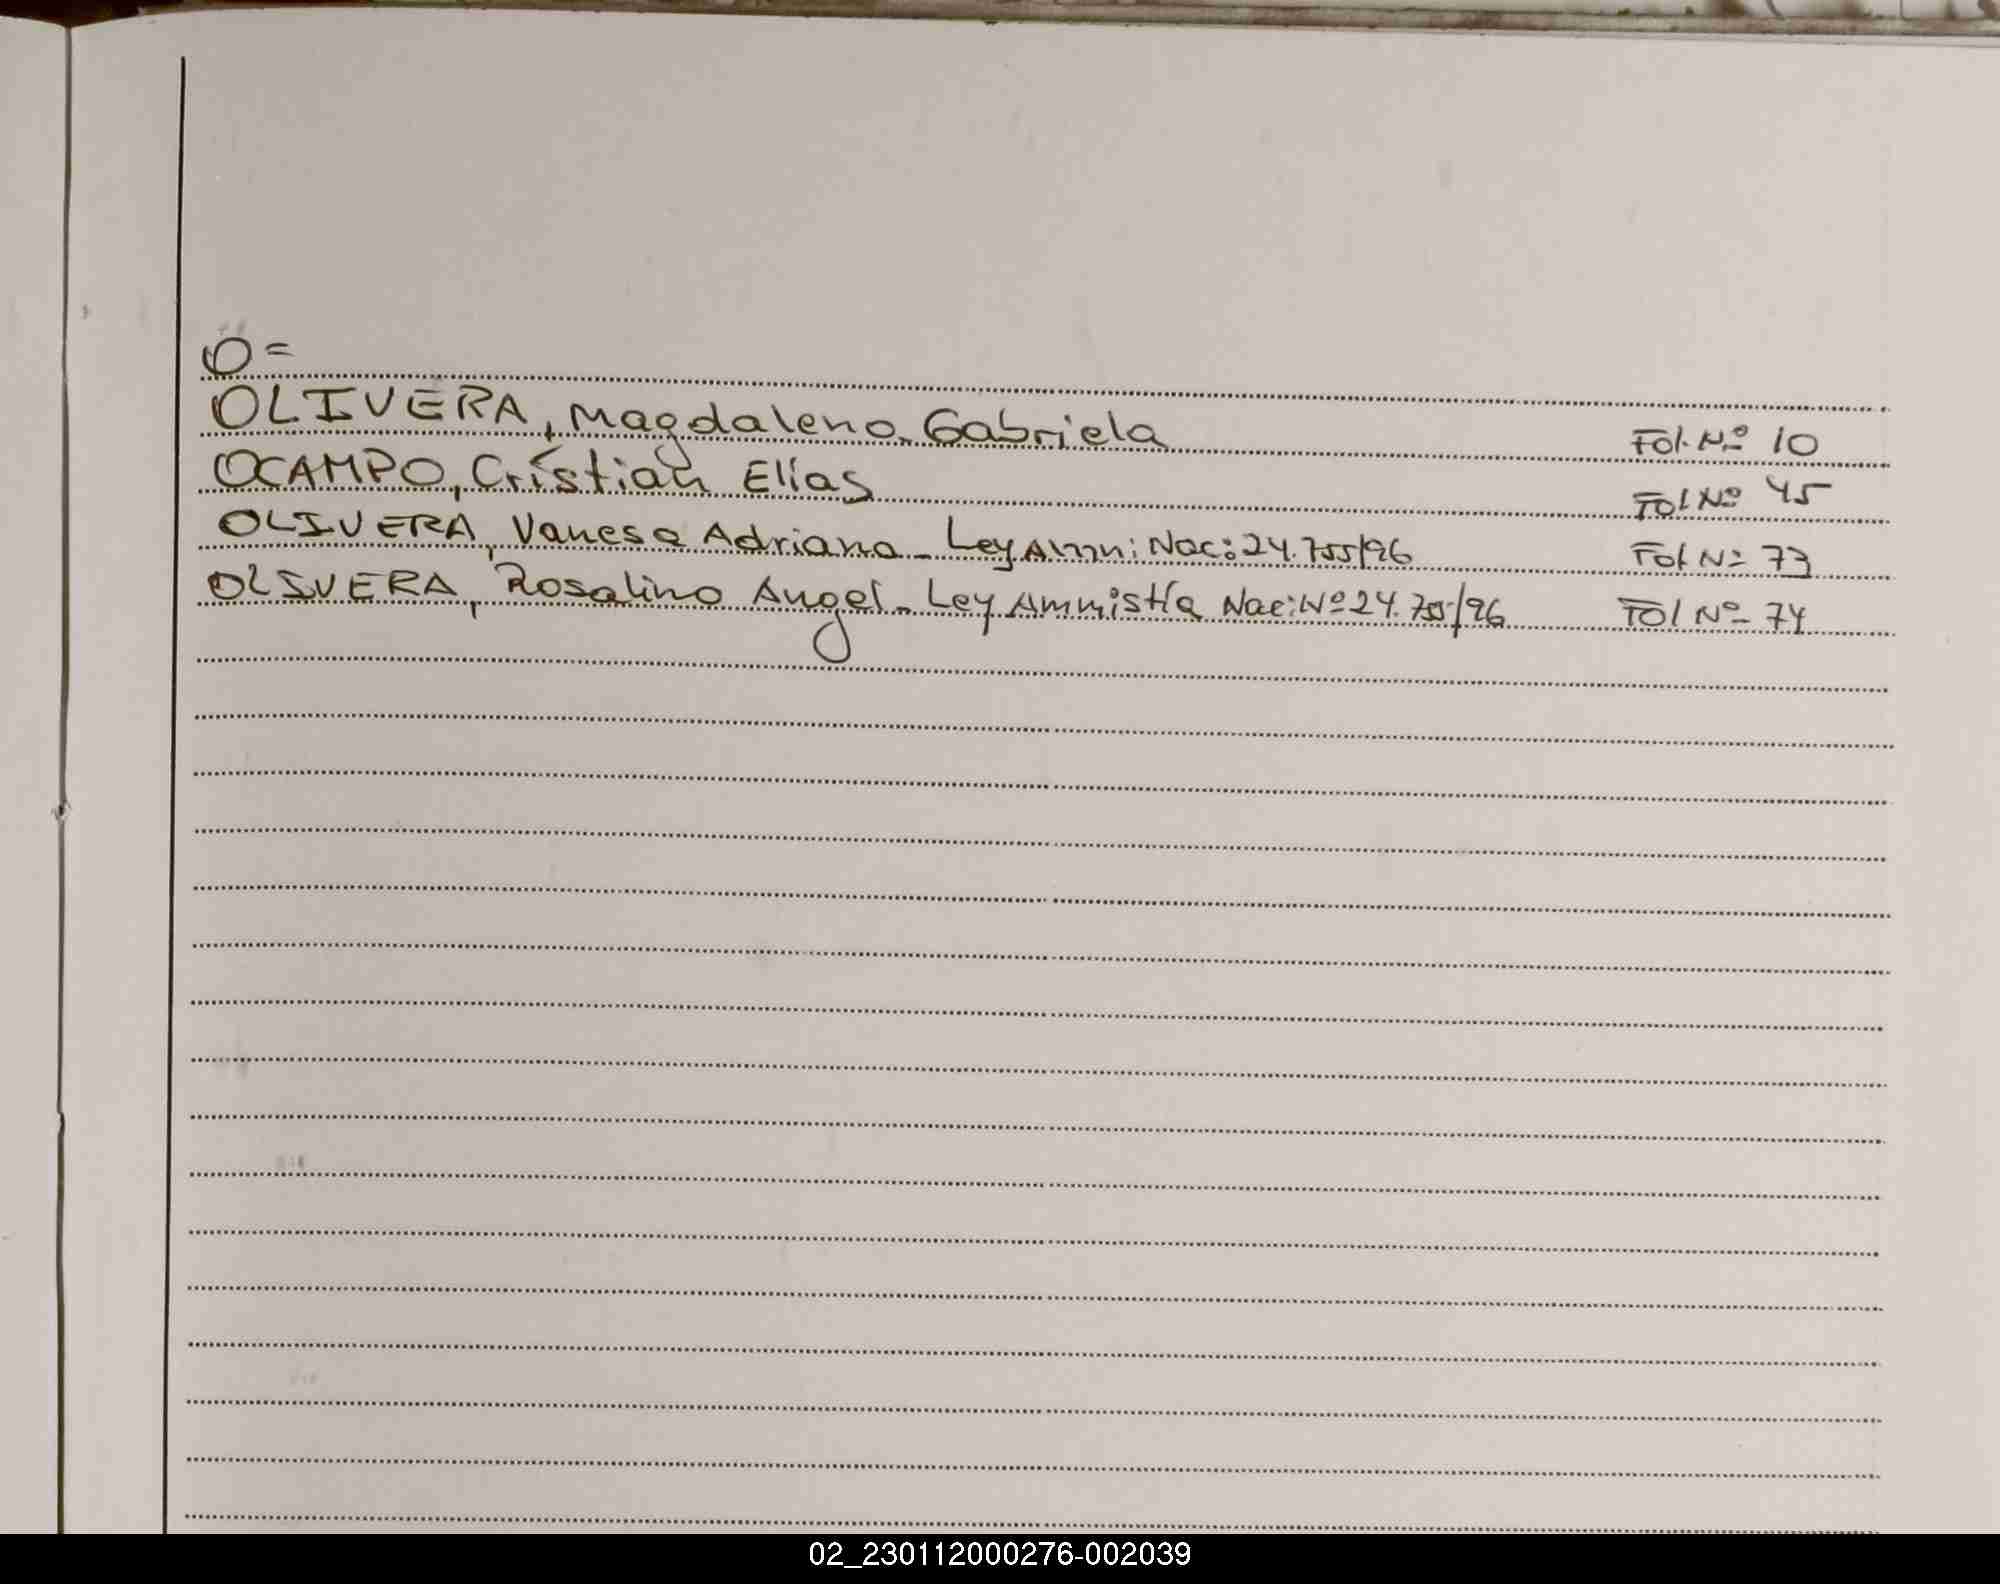 O=
OLIVERA, Magdalena Gabriela Fol. Nº 10
OCAMPO, Cristian Elías Fol Nº 45
OLIVERA, Vanesa Adriana - Ley Amn: Nac: 24.755/96 Fol N= 73
OLIVERA, Rosalino Angel - Ley Amnistía Nac: Nº 24.755/96 Fol Nº 74
02_230112000276-002039